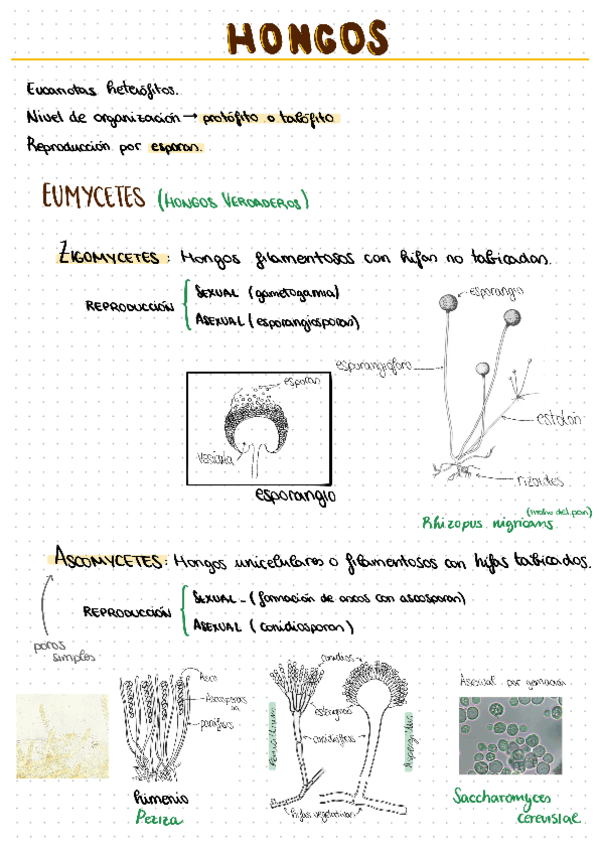 HONGOS
Eucariotas heterófitos.
Nivel de organización → protófito o talófito
Reproducción por esporas.
EUMYCETES (HONGOS VERDADEROS)
ZIGOMYCETES: Hongos filamentosos con hifas no tabicadas.
REPRODUCCIÓN
SEXUAL (gametogamia)
ASEXUAL (esporangiosporas)
esporangio
esporangióforo
estolón
rizoides
esporas
vesícula
esporangio
(moho del pan)
Rhizopus nigricans
ASCOMYCETES: Hongos unicelulares o filamentosos con hifas tabicadas.
poros
simples
REPRODUCCIÓN
SEXUAL - (formación de ascos con ascosporas)
ASEXUAL (conidiosporas)
Asco
Ascosporas
parafisis
himenio
Peziza
conidios
esterigmas
conidióforo
hifas vegetativas
Penicillium
Aspergillus
Asexual por gemación
Saccharomyces
cerevisiae